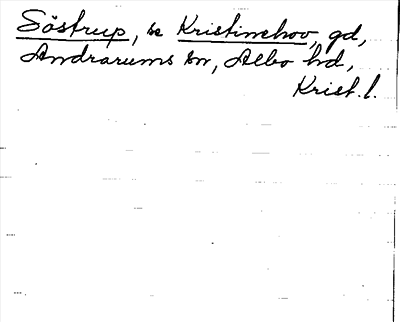 Söstrup, se Kristinehov, gd,
Andrarums sn, Albo hd,
Krist. l.